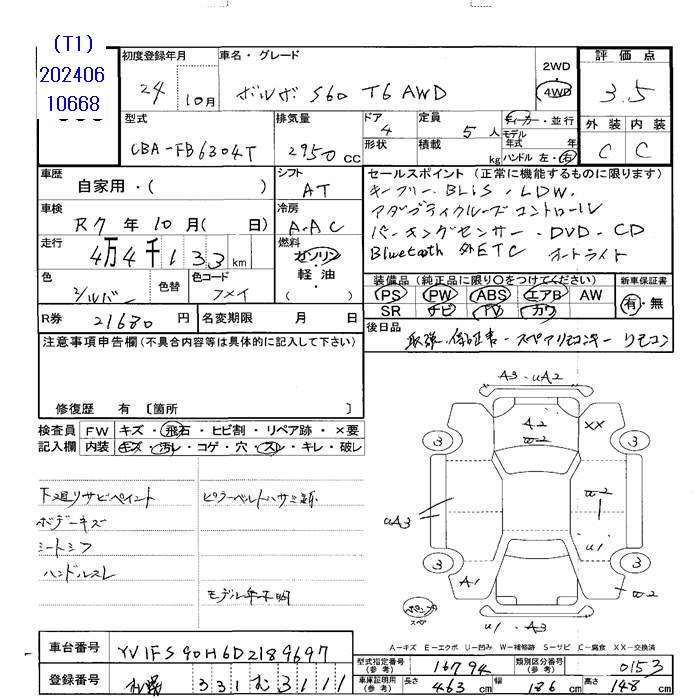 (T1)
202406
10668
初度登録年月
24年10月
車名・グレード
ボルボ S60 T6 AWD
2WD
4WD
評価点
3.5
外装 内装
C C
型式
CBA-FB6304T
排気量
2950 CC
ドア
4
形状
定員
5人
積載
kg
ディーラー・並行
モデル
年式 年
ハンドル 左・右
車歴
自家用・( )
シフト
AT
車検
R7年10月( 日)
冷房
A.AC
走行
4万4千133km
燃料
ガソリン
軽・油
( )
色
シルバー
色替
色コード
フメイ
R券 21680円
名変期限 月 日
セールスポイント (正常に機能するものに限ります)
キーフリー. BLiS. LDW.
アダプティクルーズコントロール
パーキングセンサー. DVD. CD
Bluetooth 外ETC オートライト
装備品 (純正品に限り〇をつけてください)
PS PW ABS エアB AW
SR ナビ TV カワ
新車保証書
有・無
後日品
取説. 保証書. スペアリモコンキー リモコン
注意事項申告欄(不具合内容等は具体的に記入して下さい)
修復歴 有〔箇所 〕
検査員
記入欄
FW キズ・飛石・ヒビ割・リペア跡・×要
内装 キズ・汚レ・コゲ・穴・スレ・キレ・破レ
下廻りサビペイント
ボデーキズ
シートシワ
ハンドルスレ
ピラーベルトハサミ跡
モデル年不明
A3. uA2
A2
w-2
XX
3
3
uA3
u-2
u1
3
3
A1
w-2
スペ
u1. A3
A-キズ E-エクボ U-凹み W-補修跡 S-サビ C-腐食 XX-交換済
車台番号
YV1FS90H6D2189697
登録番号
331 む 3111
型式指定番号
(参考)
16794
類別区分番号
(参考)
0153
車庫証明用
(参考)
長さ 463 cm
幅 186 cm
高さ 148 cm